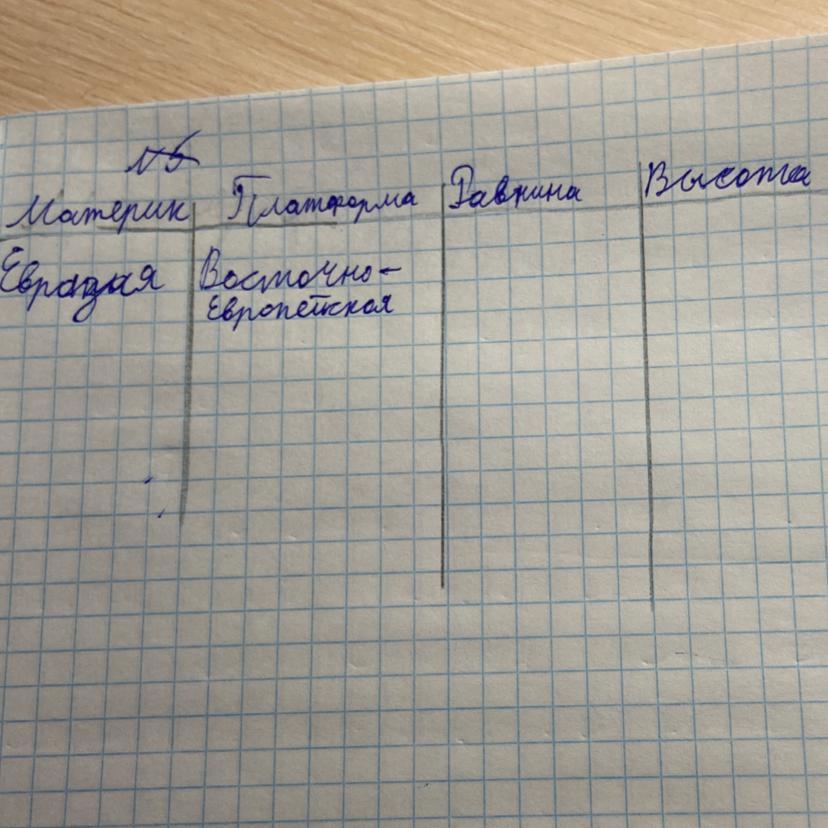 №5
Материк Платформа Равнина Высота
Евразия Восточно-
Европейская